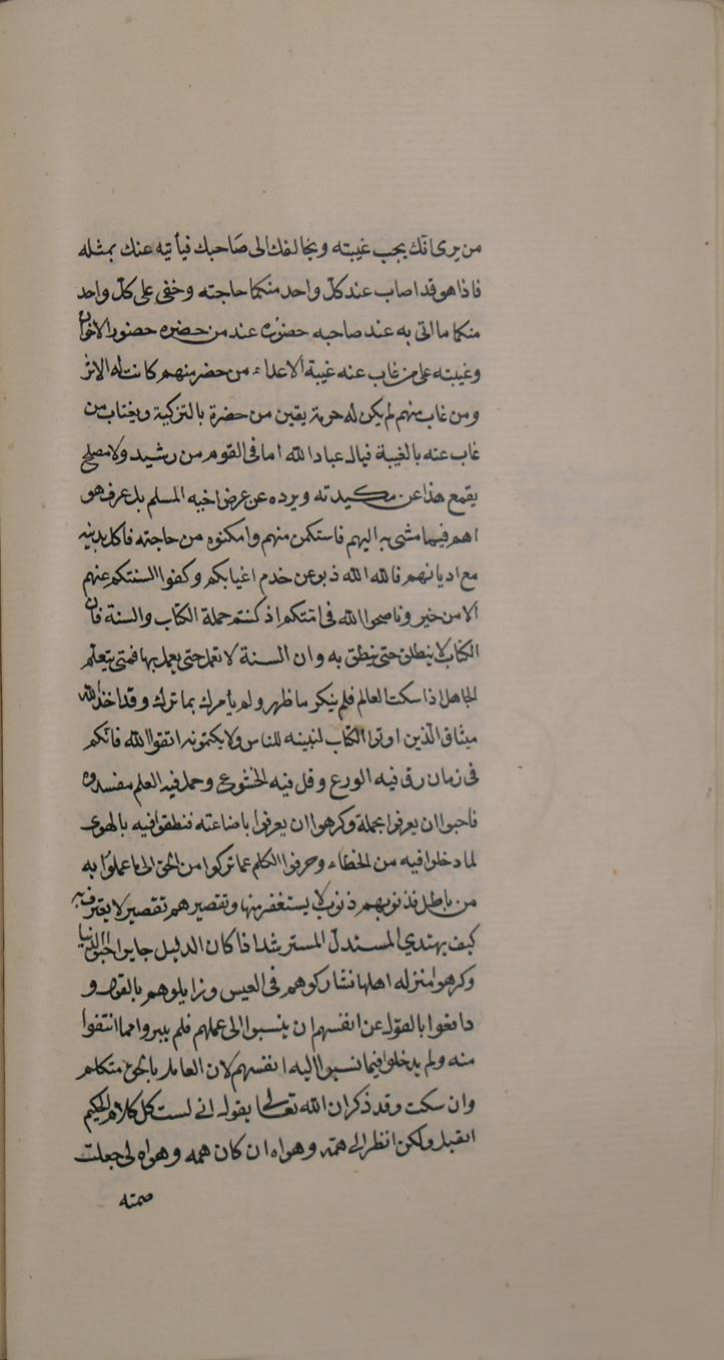 من يرى انك يجب غيبته ويخالفك الى صَاحبك فيأتيه عنك بمثله
فاذا هو قد اصاب عند كلّ واحد منكما حاجته وخفى على كلّ واحد
منكما ما اتى به عند صاحبه حضوره عند من حضره حضور الاخوان
وغيبته على من غاب عنه غيبة الاعداء من حضر منهم كانت له الاثر
ومن غاب منهم لم يكن له حرمة يفتن من حضرة بالتزكية ويغتاب من
غاب عنه بالغيبة فيال عباد الله اما فى القوم من رشيد ولا مصلح
يقمع هذا عن مكيدته ويرده عن عرض اخيه المسلم بل عرف هو
اهم فيما مشى به اليهم فاستمكن منهم وامكنوه من حاجته فاكل بدينه
مع اديانهم فالله الله ذبوا عن حرم اغيابكم وكفوا السنتكم عنهم
الا من خير وناصحوا الله فى امتكم اذ كنتم حملة الكتاب والسنة فان
الكتاب لا ينطق حتى ينطق به وان السنة لا تعمل حتى يعمل بها فمتى يتعلم
الجاهل اذا سكت العالم فلم ينكر ما ظهر ولم يأمرك بما ترك وقد اخذ الله
ميثاق الذين اوتوا الكتاب لتبيننه للناس ولا يكتمونه اتقوا الله فانكم
فى زمان رق فيه الورع وقل فيه الخشوع وحمل فيه العلم مفسدوه
فاحبوا ان يعرفوا بحملة وكرهوا ان يعرفوا باضاعته فنطقوا فيه بالهوى
لما دخلوا فيه من الخطاء وحرفوا الكلم عما تركوا من الحق الى ما عملوا به
من باطل فذنوبهم ذنوب لا يستغفر منها وتقصيرهم تقصير لا يعترف به
كيف يهتدي المستدل المسترشد اذا كان الدليل جايرا احبوا الدنيا
وكرهوا منزله اهلها فشاركوهم فى العيس وزايلوهم بالقول و
دافعوا بالقول عن انفسهم ان ينسبوا الى عملهم فلم يبروا مما انتفوا
منه ولم يدخلوا فيما نسبوا اليه انفسهم لان العامل بالحق متكلم
وان سكت وقد ذكر ان الله تعالى يقول انى لست كل كلام الحكيم
اتقبل ولكن انظر الى همه وهواه ان كان همه وهواه لى جعلت
صمته